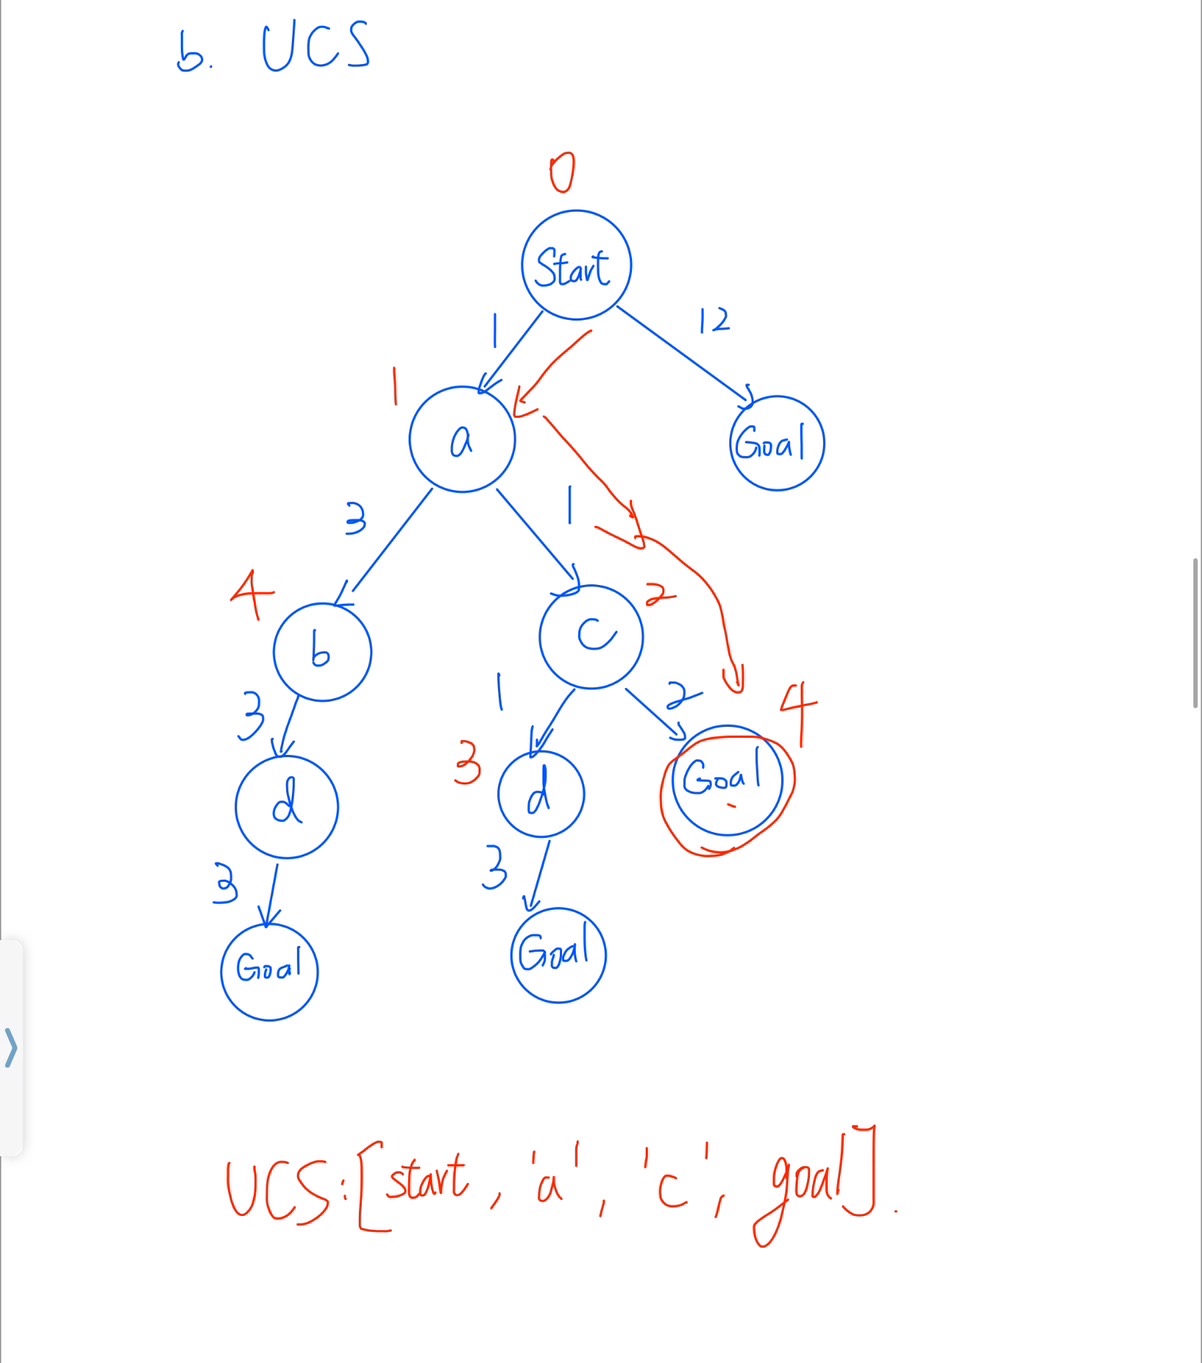 b. UCS
0
Start
1
12
1
a
Goal
3
1
4
2
b
c
3
1
2
4
3
d
d
Goal
3
3
Goal
Goal
UCS:[start, 'a', 'c', goal].